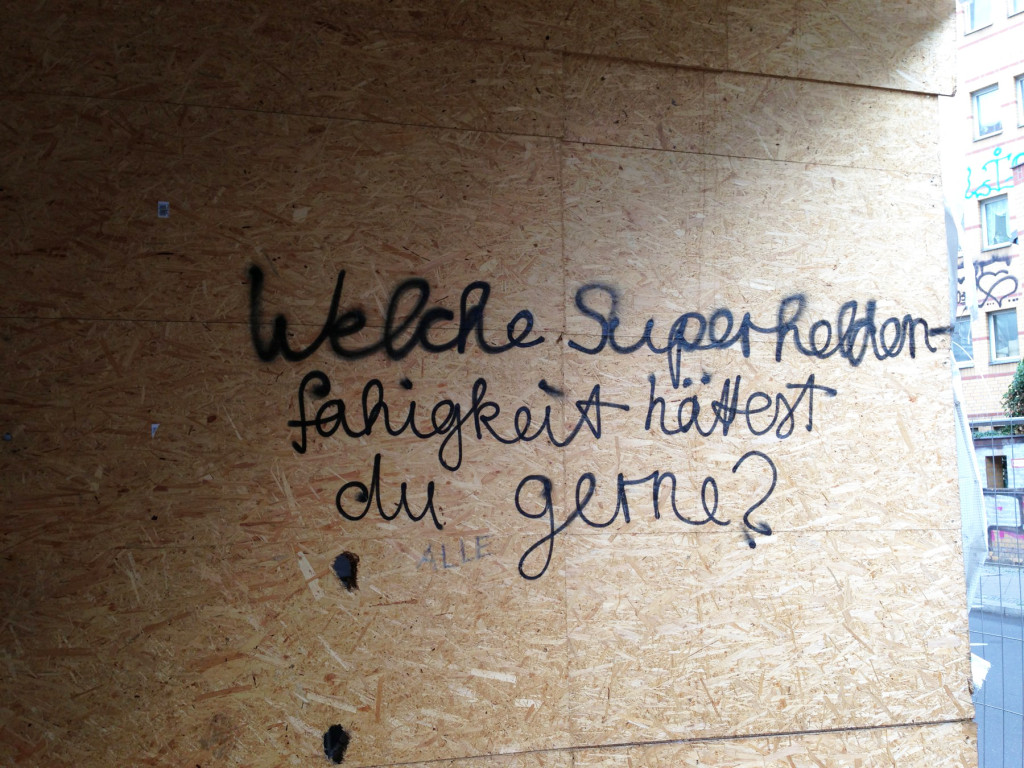 Welche Superhelden-
fahigkeit hättest
du gerne?
ALLE